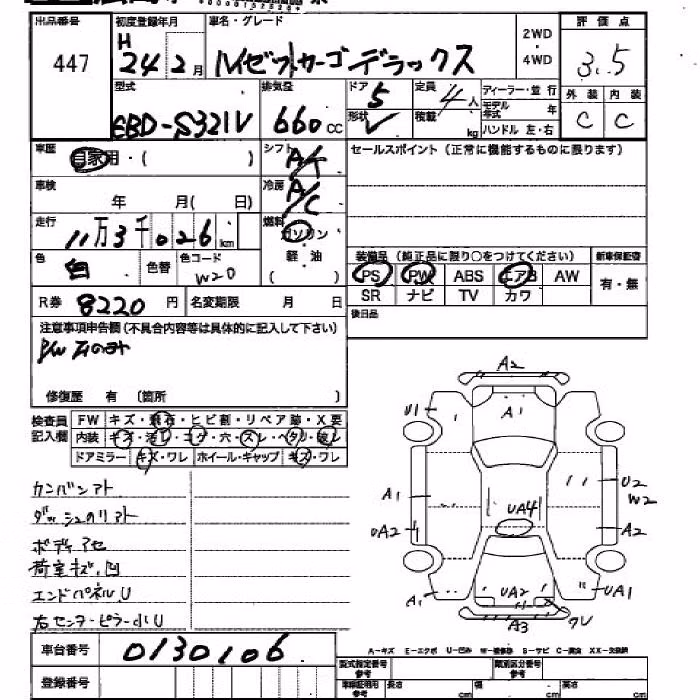 出品番号 初度登録年月 車名・グレード 2WD・4WD 評価点
447 H 24 2月 ハイゼットカーゴ デラックス 3.5
型式 排気量 ドア 5 定員 4人 ディーラー・並行 外装 内装
EBD-S321V 660cc 形状 V 積載 kg モデル年式 年 C C
ハンドル 左・右
車歴 自家用・( ) シフト A/T セールスポイント(正常に機能するものに限ります)
車検 年 月( 日) 冷房 A/C
走行 11万3千026km 燃料 ガソリン
軽油
( )
色 白 色替 色コード W20
装備品(純正品に限り○をつけてください) 新車保証書
PS PW ABS エアB AW 有・無
SR ナビ TV カワ
R券 8220円 名変期限 月 日
後日品
注意事項申告欄(不具合内容等は具体的に記入して下さい)
P/W
修復歴 有(箇所 )
検査員記入欄 FW キズ・飛石・ヒビ割・リペア跡・X要
内装 キズ・汚レ・コゲ・穴・スレ・ヘタリ・
ドアミラー キズ・ワレ ホイール・キャップ キズ・ワレ
カンバンアト
ダッシュのリアト
ボディアセ
荷室キズ、凹
エンドパネルU
右センターピラー小U
A2
U1 A1
A1 UA4 U2 W2
UA2 A2
A1 UA2 UA1
A3 クU
車台番号 0130106
A-キズ E-エクボ U-凹み W-補修跡 S-サビ C-腐食 XX-交換済
登録番号
型式指定番号 参考 類別区分番号 参考
参考 長さ cm 幅 cm 高さ cm